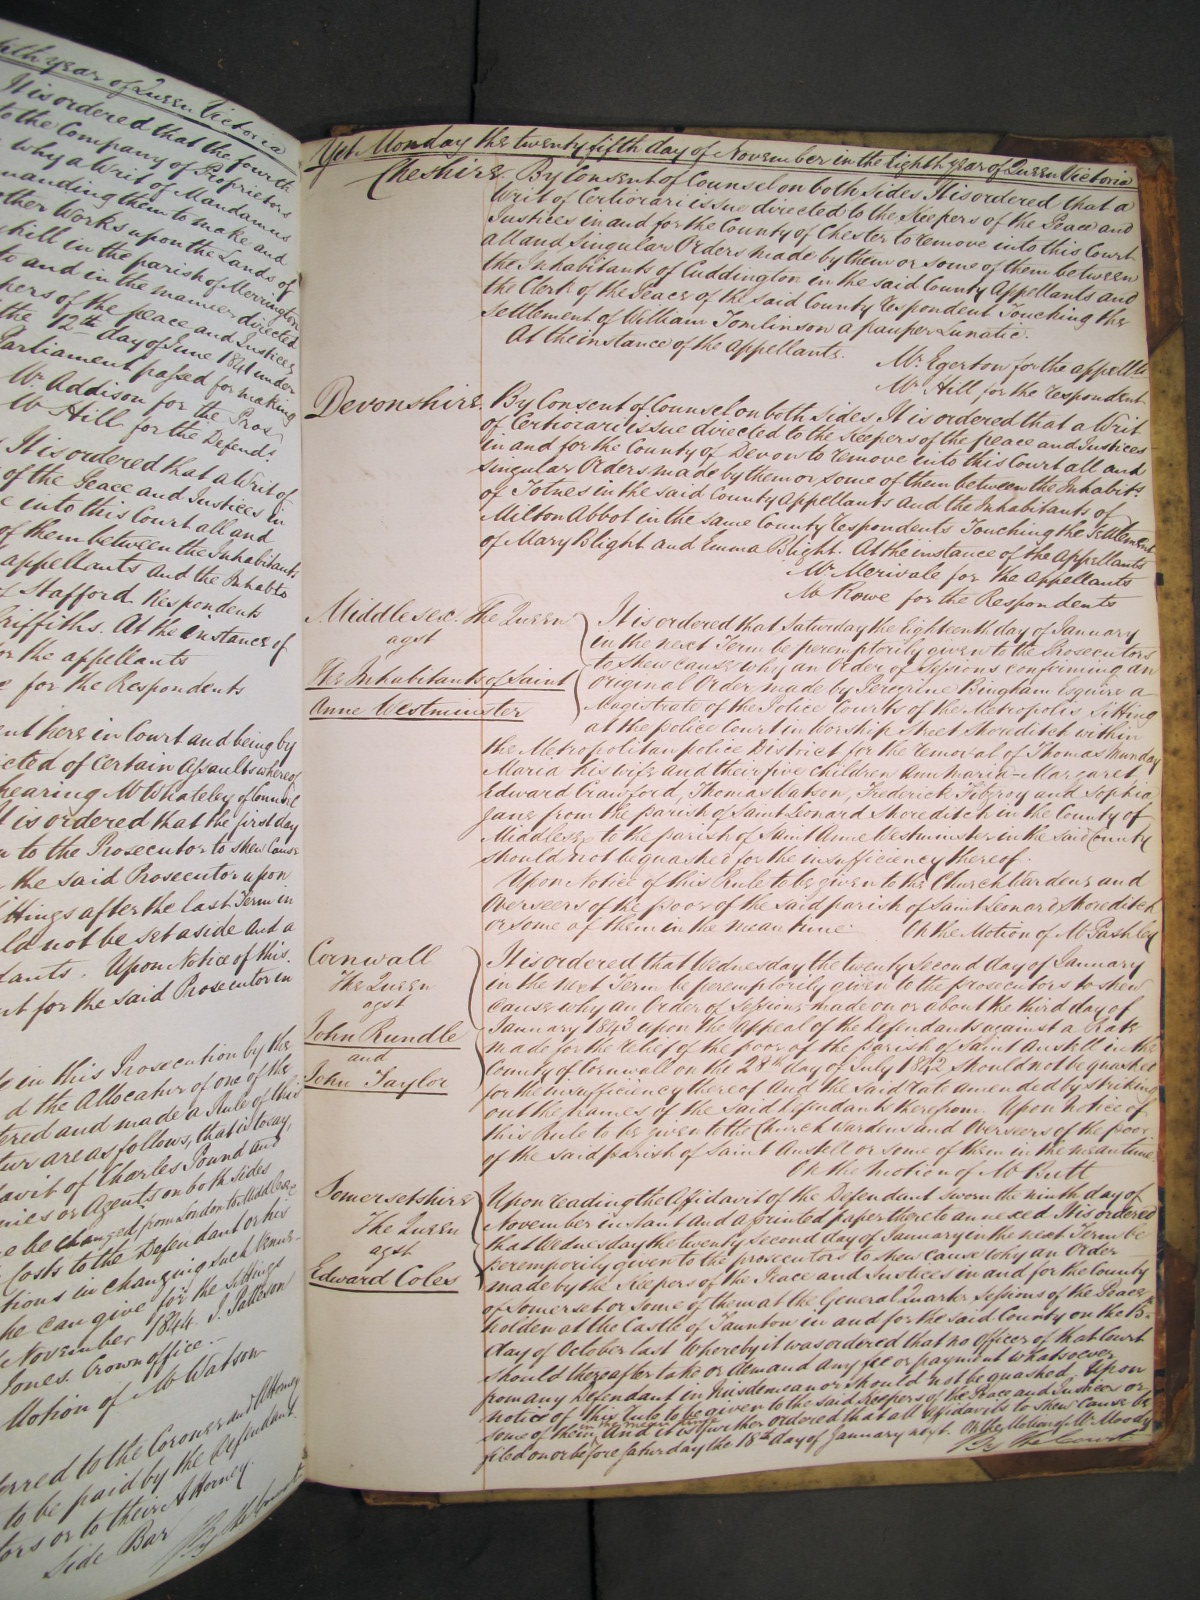 fifth year of Queen Victoria
It is ordered that the fourth
to the Company of Proprietors
why a Writ of Mandamus
manding them to make and
other Works upon the Lands of
hill in the parish of Merrington
to and in the manner directed
pers of the peace and Justices
the 12th day of June 1841 under
Parliament passed for making
Mr Addison for the Pros.
Mr Hill for the Defendt.
It is ordered that a Writ of
of the Peace and Justices in
e into this Court all and
of them between the Inhabitants
appellants and the Inhabts
of Stafford Respondents
Griffiths. At the instance of
for the appellants
e for the Respondents
ent here in Court and being by
icted of Certain Assaults whereof
hearing Mr Whateley of Counsel
It is ordered that the first day
n to the Prosecutor to shew Cause
the said Prosecutor upon
ittings after the last Term in
ld not be set aside And a
dants. Upon Notice of this
nt for the said Prosecutor in
in this Prosecution by the
d the Allocatur of one of the
tered and made a Rule of this
are as follows, that is to say,
davit of Charles Pound and
nies or Agents on both sides
e be changed from London to Middlesex
Costs to the Defendant or her
tions in changing such Venue
he can give for the Sittings
November 1844. J. Patteson
Jones. Crown office.
Motion of Mr Watson
ferred to the Coroner and Attorney
to be paid by the Defendant
tors or to their Attorney.
Side Bar By the Court
Yet Monday the twenty fifth day of November in the Eighth year of Queen Victoria
Cheshire. By Consent of Counsel on both sides It is ordered that a
Writ of Certiorari issue directed to the Keepers of the Peace and
Justices in and for the County of Chester to remove into this Court
all and Singular Orders made by them or some of them between
the Inhabitants of Cuddington in the said County Appellants and
the Clerk of the Peace of the said County Respondent Touching the
Settlement of William Tomlinson a pauper Lunatic.
At the instance of the appellants.
Mr. Egerton for the appellts
Mr. Hill for the Respondent
Devonshire. By Consent of Counsel on both Sides It is ordered that a Writ
of Certiorari issue directed to the Keepers of the peace and Justices
in and for the County of Devon to remove into this Court all and
Singular Orders made by them or some of them between the Inhabits
of Totnes in the said County Appellants And the Inhabitants of
Milton Abbot in the same County Respondents Touching the Settlement
of Mary Blight and Emma Blight. At the instance of the Appellants
Mr Merivale for the Appellants
Mr Rowe for the Respondents
Middlesex. The Queen
agst
The Inhabitants of Saint
Anne Westminster
It is ordered that Saturday the Eighteenth day of January
in the next Term be peremptorily given to the Prosecutors
to shew cause why an Order of Sessions confirming an
Original Order made by Peregrine Bingham Esquire a
Magistrate of the Police Courts of the Metropolis Sitting
at the police Court in Worship Street Shoreditch within
the Metropolitan police District for the removal of Thomas Munday
Maria his wife and their five children Ann Maria – Margaret
Edward Crawford, Thomas Watson, Frederick Fitzroy and Sophia
Jane from the parish of Saint Leonard Shoreditch in the County of
Middlesex to the parish of Saint Anne Westminster in the said County
should not be quashed for the insufficiency thereof.
Upon Notice of this Rule to be given to the Church Wardens and
Overseers of the poor of the said parish of Saint Leonard Shoreditch
or some of them in the mean time. On the Motion of Mr Pashley
Cornwall
The Queen
agst
John Rundle
and
John Taylor
It is ordered that Wednesday the twenty Second day of January
in the next Term be peremptorily given to the prosecutors to shew
cause why an Order of Sessions made on or about the third day of
January 1843 upon the Appeal of the Defendants against a Rate
made for the relief of the poor of the parish of Saint Austell in the
County of Cornwall on the 28th day of July 1842 should not be quashed
for the insufficiency thereof And the said rate amended by striking
out the names of the said Defendants therefrom. Upon Notice of
this Rule to be given to the Church Wardens and Overseers of the poor
of the said parish of Saint Austell or some of them in the mean time
On the Motion of Mr Butt
Somersetshire
The Queen
agst
Edward Coles
Upon reading the Affidavit of the Defendant sworn the ninth day of
November instant and a printed paper thereto annexed It is ordered
that Wednesday the twenty Second day of January in the next Term be
peremporily given to the prosecutors to shew cause why an Order
made by the Keepers of the Peace and Justices in and for the County
of Somerset or some of them at the General Quarter Sessions of the Peace
holden at the Castle of Taunton in and for the said County on the 15th
day of October last Whereby it was ordered that no officer of that Court
should thereafter take or demand any fee or payment whatsoever
from any Defendant in Misdemeanor should not be quashed. Upon
notice of this Rule to be given to the said Keepers of the Peace and Justices or
some of them in the mean time And it is further ordered that all affidavits to shew cause be
filed on or before Saturday the 18th day of January next. On the Motion of Mr Moody
By the Court